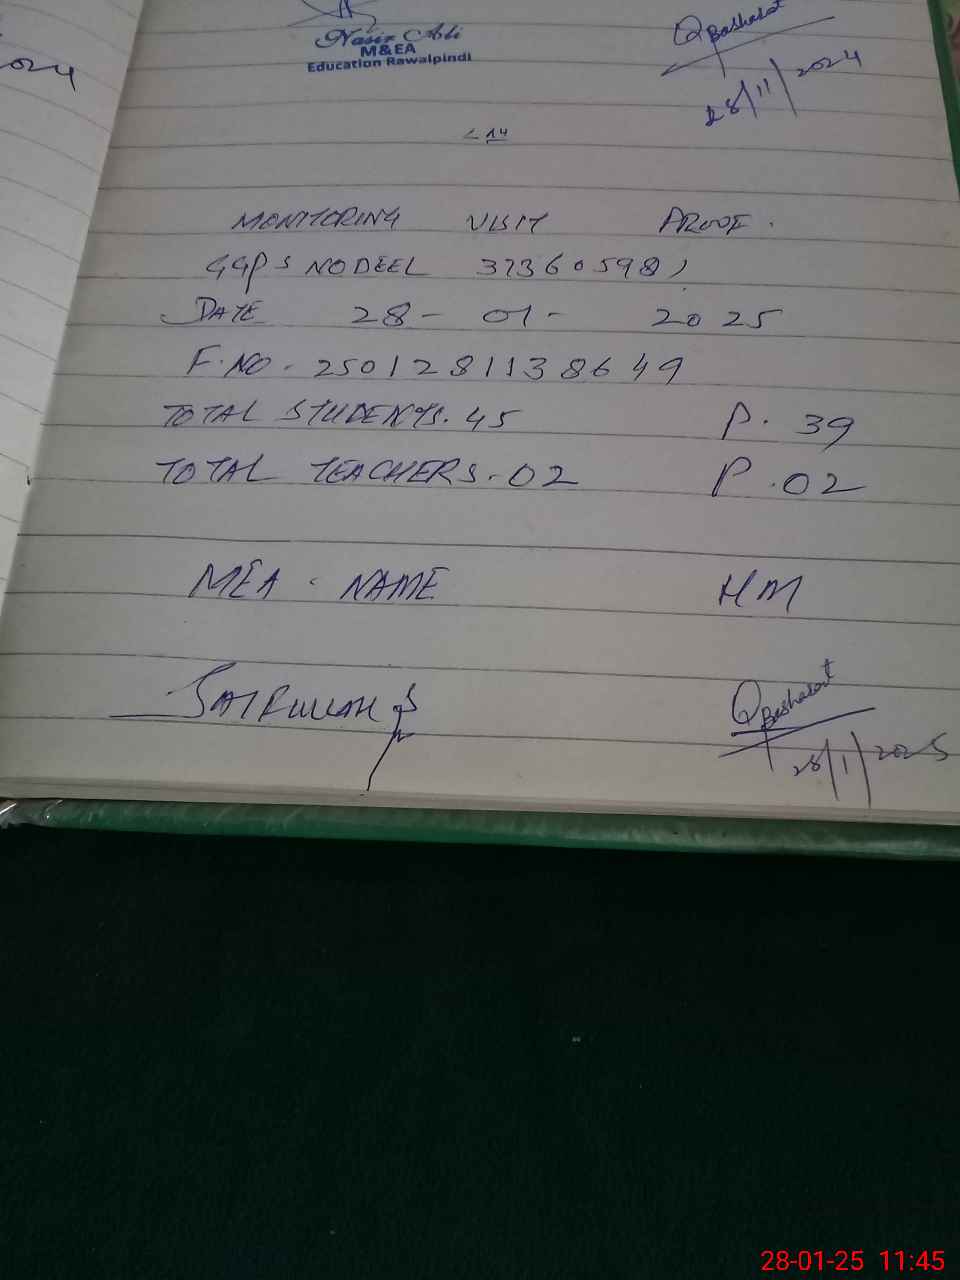 2024
Nasir Ali
M&EA
Education Rawalpindi
QBasharat
28/11/2024
MONITORING VISIT PROOF.
GGPS NODEEL 37360598)
DATE 28-01-2025
F.NO. 2501281138649
TOTAL STUDENTS. 45 P. 39
TOTAL TEACHERS. 02 P. 02
MEA. NAME HM
QBasharat
28/1/2025
28-01-25 11:45